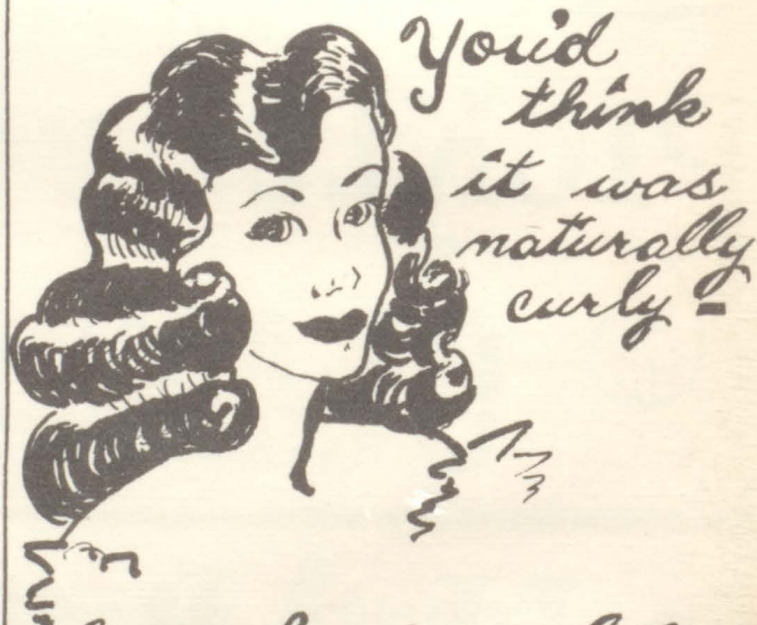 You'd
think
it was
naturally
curly -